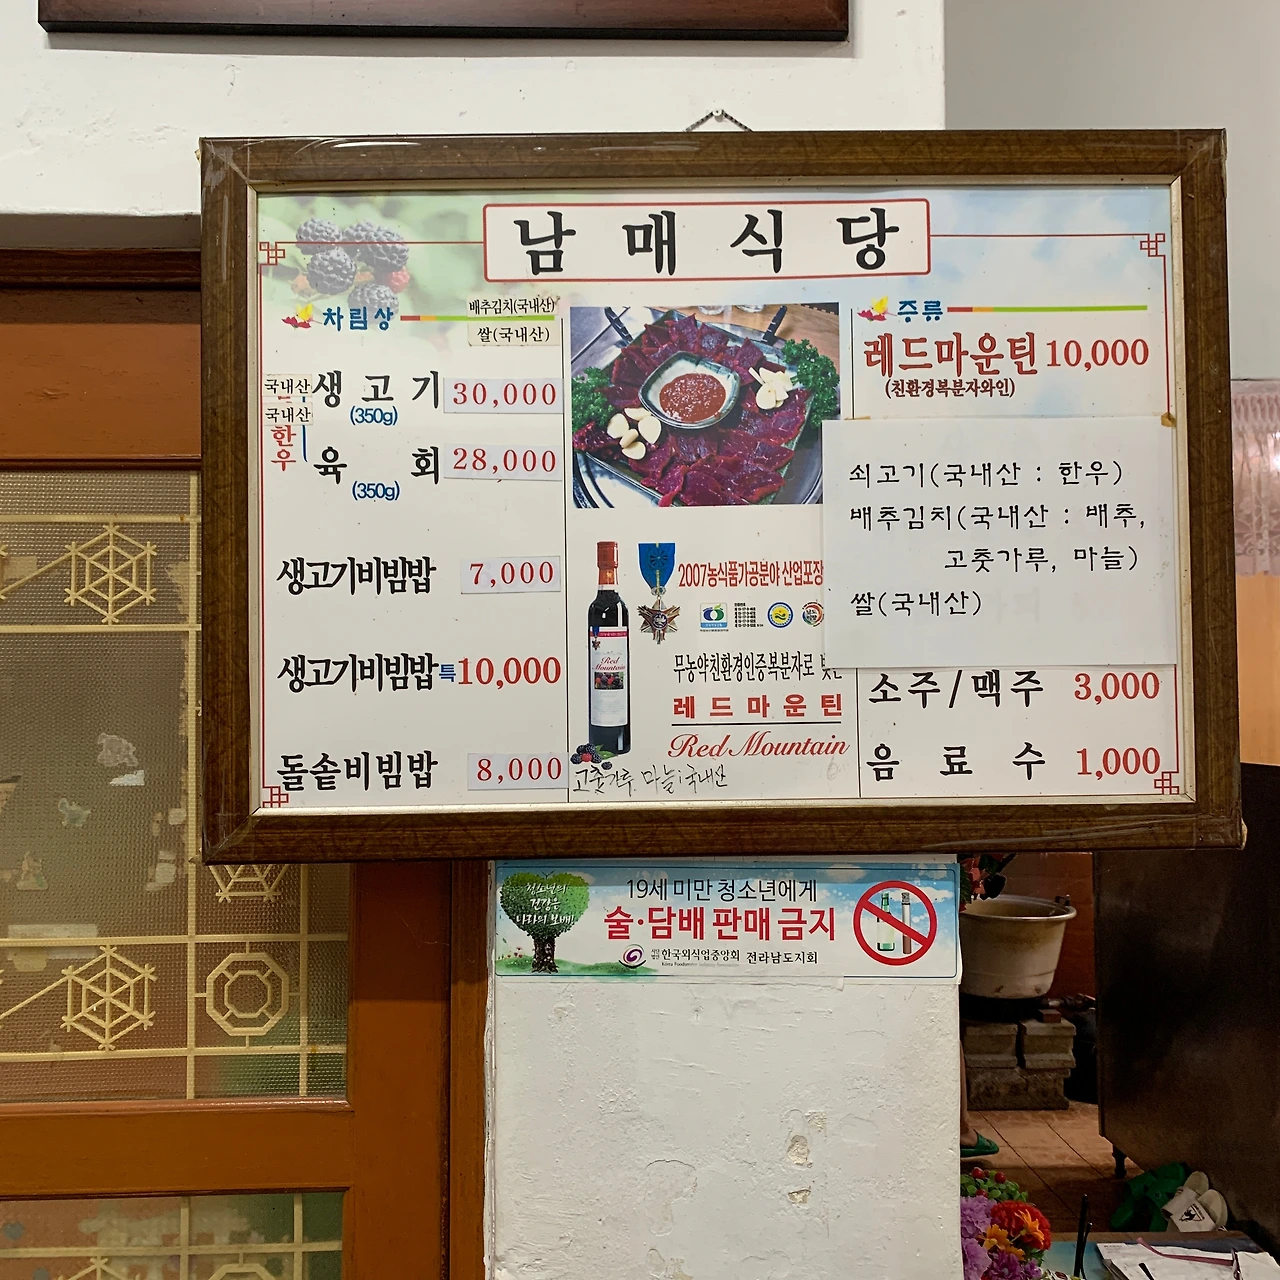 남매식당
차림상
배추김치(국내산)
쌀(국내산)
국내산
국내산
한우
생고기 30,000
(350g)
육회 28,000
(350g)
생고기비빔밥 7,000
생고기비빔밥특 10,000
돌솥비빔밥 8,000
2007농식품가공분야 산업포장
Red Mountain
무농약친환경인증복분자로
레드마운틴
Red Mountain
고춧가루, 마늘:국내산
주류
레드마운틴 10,000
(친환경복분자와인)
쇠고기(국내산 : 한우)
배추김치(국내산 : 배추,
고춧가루, 마늘)
쌀(국내산)
소주/맥주 3,000
음료수 1,000
청소년의
건강은
나라의 보배!
19세 미만 청소년에게
술·담배 판매 금지
한국외식업중앙회 전라남도지회